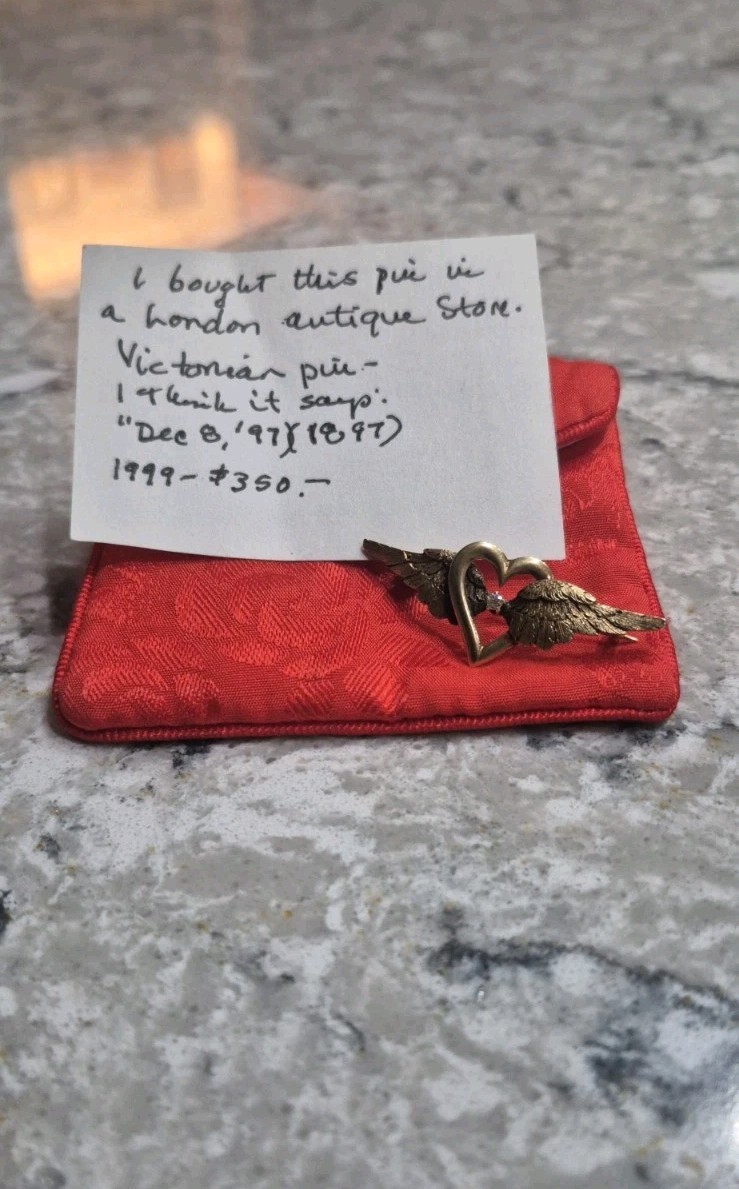 I bought this pin in
a London antique Store.
Victorian pin-
I think it says:
"Dec 8, '97)(1897)
1999- $350.-